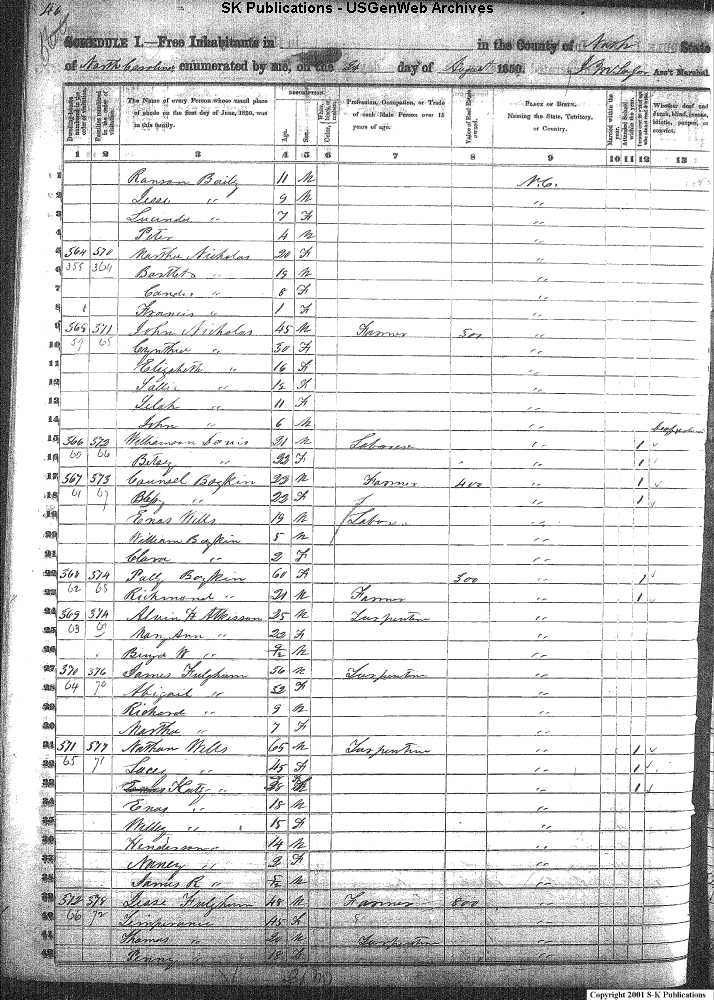 SK Publications - USGenWeb Archives
46
SCHEDULE I.—Free Inhabitants in in the County of Nash State
of North Carolina enumerated by me, on the day of August 1850. Ass't Marshal.
Dwelling-houses numbered in the order of visitation. Families numbered in the order of visitation. The Name of every Person whose usual place of abode on the first day of June, 1850, was in this family. DESCRIPTION. Age. Sex. Color, White, black, or mulatto. Profession, Occupation, or Trade of each Male Person over 15 years of age. Value of Real Estate owned. PLACE OF BIRTH. Naming the State, Territory, or Country. Married within the year. Attended School within the year. Whether deaf and dumb, blind, insane, idiotic, pauper, or convict.
1 2 3 4 5 6 7 8 9 10 11 12 13
1 Ranson Baily 11 M N.C.
2 Jesse " 9 M "
3 Lucinda " 7 F "
4 Peter 4 M "
5 564 570 Martha Nicholas 20 F "
6 358 364 Bartlet " 19 M "
7 Candis " 8 F "
8 Francis " 1 F "
9 565 571 John Nicholas 45 M Farmer 500 "
10 59 65 Cynthia " 30 F "
11 Elizabeth " 16 F "
12 Sallie " F "
13 " 11 F "
14 John " 6 M "
15 566 572 Williamson Davis 21 M Laborer " 1
16 60 66 Betsey " 22 F " 1
17 567 573 Counsel Boykin 22 M Farmer 400 " 1
18 61 67 " 22 F " 1
19 Enas Wills 19 M Laborer "
20 William Boykin 5 M "
21 Clara " 2 F "
22 568 574 Polly Boykin 60 F 300 " 1
23 62 68 Richmond " 21 M Farmer " 1
24 569 574 Alvin H Atkisson 25 M Turpentine "
25 63 69 Mary Ann " 22 F "
26 W " M "
27 570 576 James Fulghum 56 M Turpentine "
28 64 70 Abigail " 52 F "
29 Richard " 9 M "
30 Martha " 7 F "
31 571 577 Nathan Wells 65 M Turpentine " 1
32 65 71 Lucy " 45 F " 1
33 Katy " " 1
34 Enas " 18 M "
35 Willey " 15 F "
36 Henderson " 14 M "
37 Nancy " 2 F "
38 James R " M "
39 572 578 Jesse Fulghum 48 M Farmer 800 "
40 66 72 Temperance 45 F "
41 Thomas " 20 M Turpentine "
42 Penny " 18 F "
Copyright 2001 S-K Publications